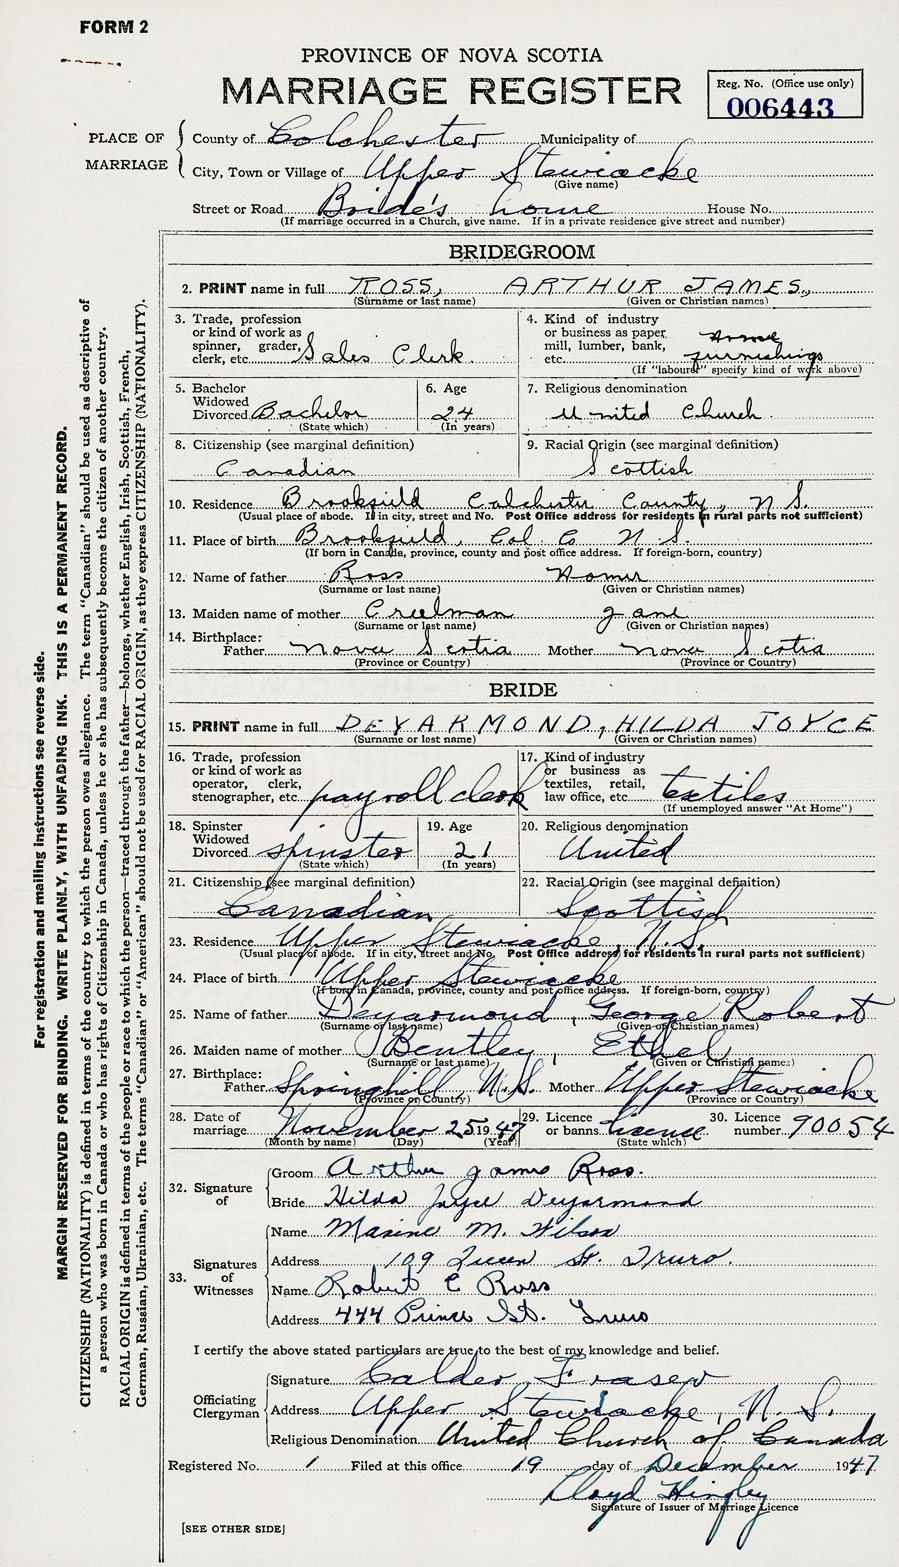 FORM 2
PROVINCE OF NOVA SCOTIA
MARRIAGE REGISTER
Reg. No. (Office use only)
006443
PLACE OF MARRIAGE
County of Colchester Municipality of
City, Town or Village of Upper Stewiacke
(Give name)
Street or Road Bride's home House No.
(If marriage occurred in a Church, give name. If in a private residence give street and number)
BRIDEGROOM
2. PRINT name in full ROSS, ARTHUR JAMES,
(Surname or last name) (Given or Christian names)
3. Trade, profession or kind of work as spinner, grader, clerk, etc. Sales Clerk
4. Kind of industry or business as paper mill, lumber, bank, etc. Home furnishings
(If "labourer" specify kind of work above)
5. Bachelor Widowed Divorced Bachelor
(State which)
6. Age 24
(In years)
7. Religious denomination United Church
8. Citizenship (see marginal definition) Canadian
9. Racial Origin (see marginal definition) Scottish
10. Residence Brookfield Colchester County, N.S.
(Usual place of abode. If in city, street and No. Post Office address for residents in rural parts not sufficient)
11. Place of birth Brookfield, Col Co N.S.
(If born in Canada, province, county and post office address. If foreign-born, country)
12. Name of father Ross Homer
(Surname or last name) (Given or Christian names)
13. Maiden name of mother Creelman Jane
(Surname or last name) (Given or Christian names)
14. Birthplace:
Father Nova Scotia Mother Nova Scotia
(Province or Country) (Province or Country)
BRIDE
15. PRINT name in full DEYARMOND, HILDA JOYCE
(Surname or last name) (Given or Christian names)
16. Trade, profession or kind of work as operator, clerk, stenographer, etc. payroll clerk
17. Kind of industry or business as textiles, retail, law office, etc. textiles
(If unemployed answer "At Home")
18. Spinster Widowed Divorced spinster
(State which)
19. Age 21
(In years)
20. Religious denomination United
21. Citizenship (see marginal definition) Canadian
22. Racial Origin (see marginal definition) Scottish
23. Residence Upper Stewiacke, N.S.
(Usual place of abode. If in city, street and No. Post Office address for residents in rural parts not sufficient)
24. Place of birth Upper Stewiacke
(If born in Canada, province, county and post office address. If foreign-born, country)
25. Name of father Deyarmond, George Robert
(Surname or last name) (Given or Christian names)
26. Maiden name of mother Bentley, Ethel
(Surname or last name) (Given or Christian names)
27. Birthplace:
Father Springhill N.S. Mother Upper Stewiacke
(Province or Country) (Province or Country)
28. Date of marriage November 25 1947
(Month by name) (Day) (Year)
29. Licence or banns license
(State which)
30. Licence number 90054
32. Signature of
Groom Arthur James Ross.
Bride Hilda Joyce Deyarmond
33. Signatures of Witnesses
Name Maxine M. Wilson
Address 109 Queen St. Truro.
Name Robert C Ross
Address 444 Prince St. Truro
I certify the above stated particulars are true to the best of my knowledge and belief.
Officiating Clergyman
Signature Calder Fraser
Address Upper Stewiacke, N.S.
Religious Denomination United Church of Canada
Registered No. 1 Filed at this office 19 day of December 1947
Lloyd Hingley
Signature of Issuer of Marriage Licence
[SEE OTHER SIDE]
For registration and mailing instructions see reverse side.
MARGIN RESERVED FOR BINDING. WRITE PLAINLY, WITH UNFADING INK. THIS IS A PERMANENT RECORD.
CITIZENSHIP (NATIONALITY) is defined in terms of the country to which the person owes allegiance. The term "Canadian" should be used as descriptive of
a person who was born in Canada or who has rights of Citizenship in Canada, unless he or she has subsequently become the citizen of another country.
RACIAL ORIGIN is defined in terms of the people or race to which the person—traced through the father—belongs, whether English, Irish, Scottish, French,
German, Russian, Ukrainian, etc. The terms "Canadian" or "American" should not be used for RACIAL ORIGIN, as they express CITIZENSHIP (NATIONALITY).